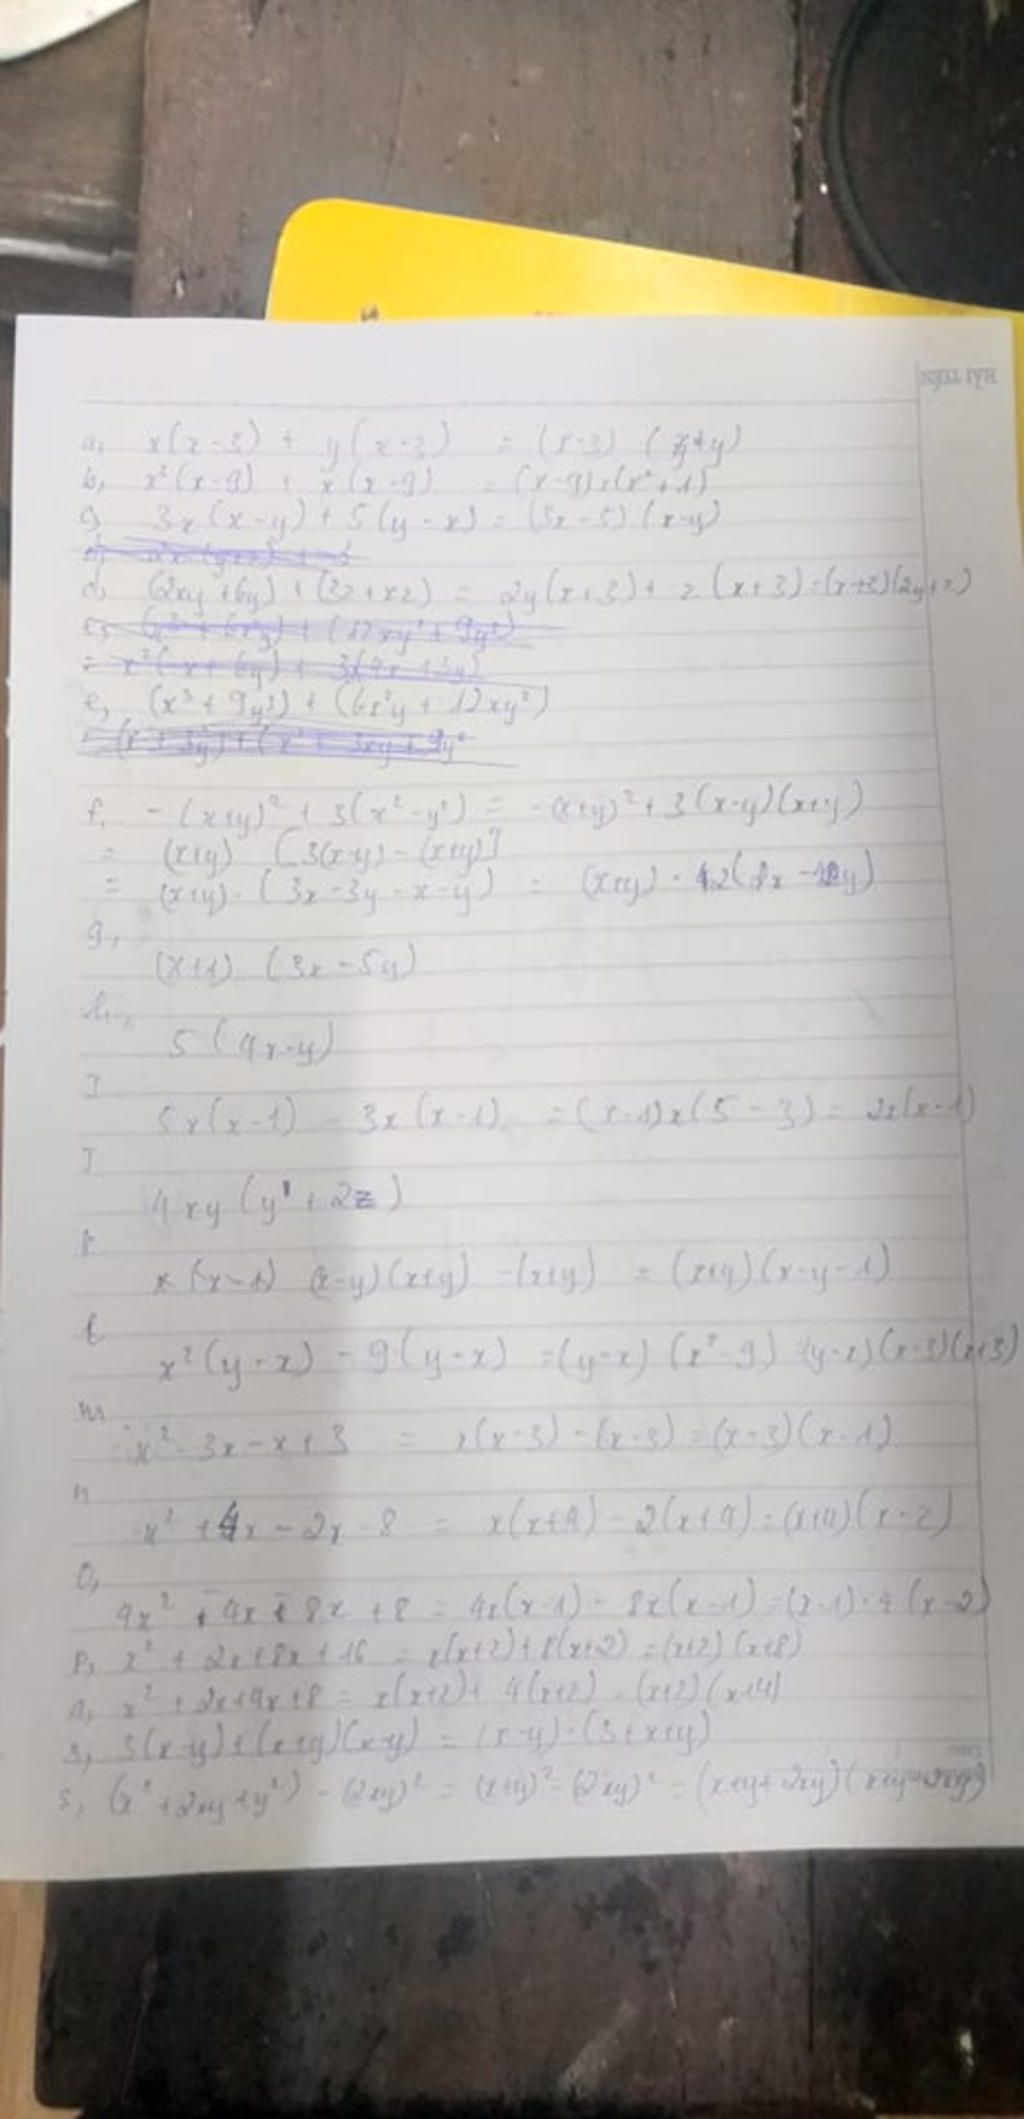 HẢI TIẾN
a, x(x-3) + y(x-3) = (x-3) (x+y)
b, x²(x-9) + x(x-9) = (x-9)x(x²+1)
c, 3x(x-y) + 5(y-x) = (3x-5)(x-y)
d, (2xy+6y) + (3z+xz) = 2y(x+3) + z(x+3) = (x+3)(2y+z)
e, (x³+9y³) + (6x²y + 12xy²)
f, -(x+y)² + 3(x²-y²) = -(x+y)² + 3(x-y)(x+y)
= (x+y) [3(x-y) - (x+y)]
= (x+y). (3x-3y-x-y) = (x+y) .
g,
(x+1) (3x-5y)
h,
5(4x-y)
I
5x(x-1) - 3x(x-1) = (x-1)x(5-3) = 2x(x-1)
J
4xy(y + 2z)
(x-y)(x+y) - (x+y) = (x+y)(x-y-1)
l
x²(y-x) - 9(y-x) = (y-x) (x²-9) = (y-x)(x-3)(x+3)
m
x²-3x-x+3 = x(x-3) - (x-3) = (x-3)(x-1)
n
x²+4x-2x-8 = x(x+4) - 2(x+4) = (x+4)(x-2)
o,
4x² - 4x - 8x + 8 = 4x(x-1) - 8x(x-1) = (x-1).4(x-2)
p, x² + 2x+8x+16 = x(x+2)+8(x+2) = (x+2)(x+8)
q, x² + 2x+4x+8 = x(x+2)+ 4(x+2) = (x+2)(x+4)
3(x-y)+(x+y)(x-y) = (x-y).(3+x+y)
s, (x²+2xy+y²) - (2xy)² = (x+y)² - (2xy)² = (x+y+2xy)(x+y-2xy)